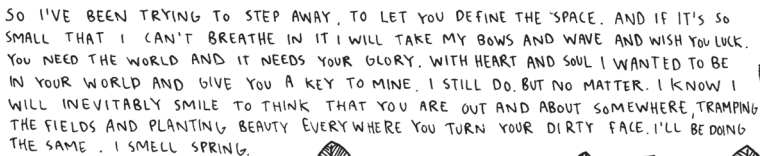 SO I'VE BEEN TRYING TO STEP AWAY, TO LET YOU DEFINE THE SPACE. AND IF IT'S SO
SMALL THAT I CAN'T BREATHE IN IT I WILL TAKE MY BOWS AND WAVE AND WISH YOU LUCK.
YOU NEED THE WORLD AND IT NEEDS YOUR GLORY. WITH HEART AND SOUL I WANTED TO BE
IN YOUR WORLD AND GIVE YOU A KEY TO MINE. I STILL DO. BUT NO MATTER. I KNOW I
WILL INEVITABLY SMILE TO THINK THAT YOU ARE OUT AND ABOUT SOMEWHERE, TRAMPING
THE FIELDS AND PLANTING BEAUTY EVERYWHERE YOU TURN YOUR DIRTY FACE. I'LL BE DOING
THE SAME. I SMELL SPRING.